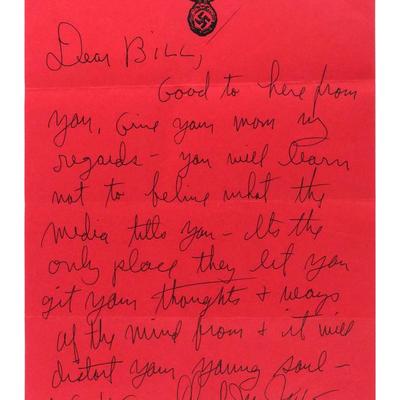 Dear BILL,
Good to here from
you, Give your mom my
regards - you will learn
not to belive what the
media tells you - Its the
only place they let you
git your thoughts + ways
of the mind from + it will
distort your young soul -